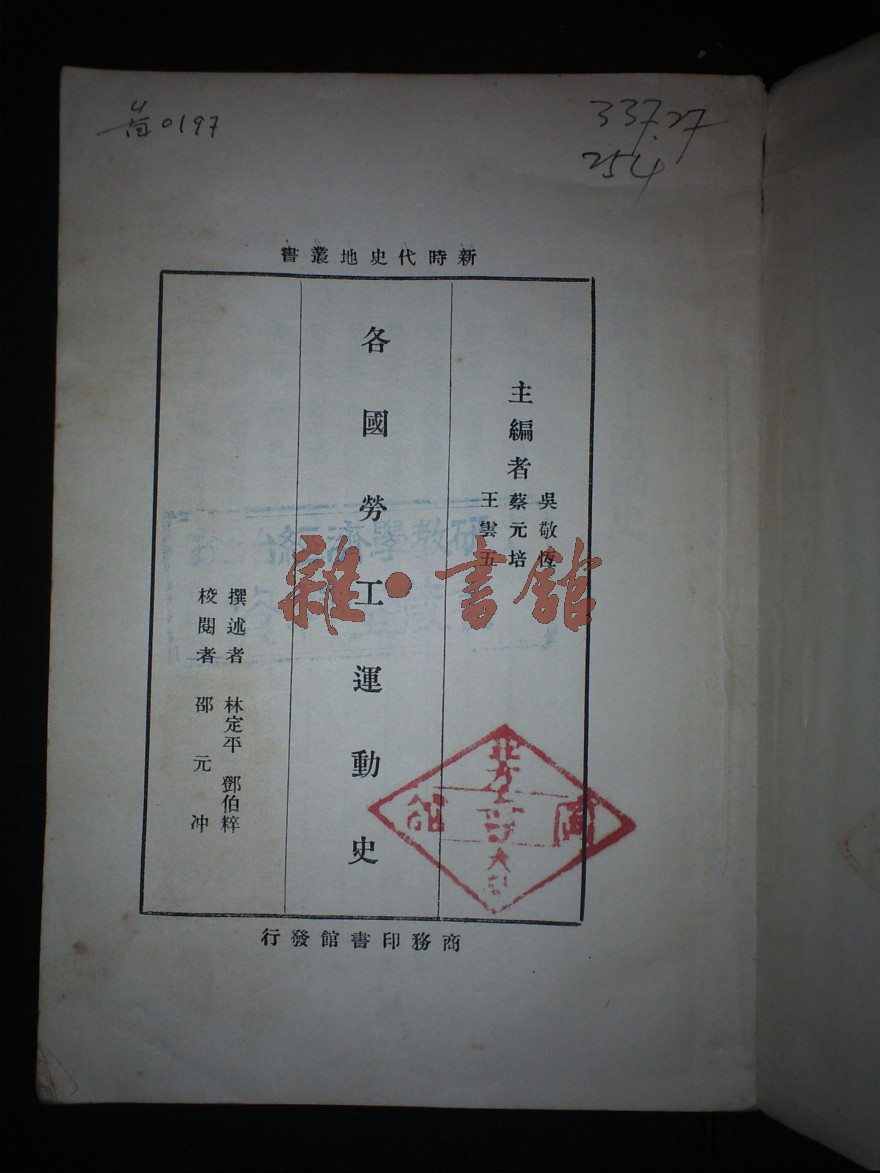 0197
337.27
254
新時代史地叢書
主編者
吳敬恆
蔡元培
王雲五
各國勞工運動史
撰述者 林定平 鄧伯粹
校閱者 邵元冲
雜·書館
經濟學教研
商務印書館發行